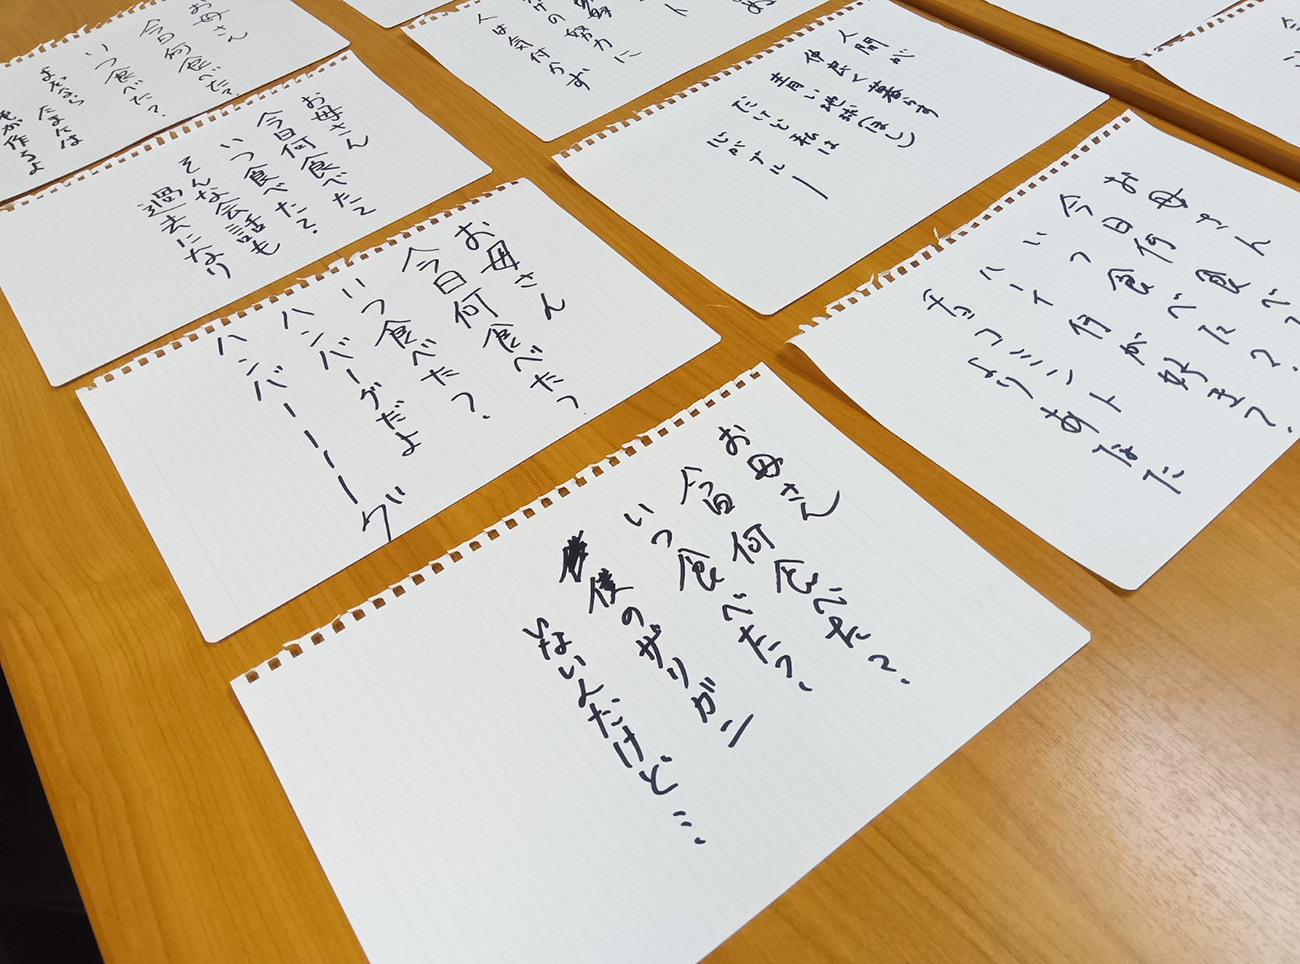 お母さん
今日何食べた?
いつ食べた?
たまには
が作るよ
お母さん
今日何食べたて
いつ食べたて
そんな会話も
過去になり
お母さん
今日何食べた?
いつ食べた?
ハンバーグだよ
ハンバーーーーグ
お母さん
今日何食べた?
いつ食べた?
僕のザリガニ
いないんだけど…
努力に
人は気付かず
人間が
仲良く暮らす
青い地球(ほし)
だけど私は
心がブルー
お母さん
今日何食べた?
いつ食べた?
ハーイ何が好き?
チョコミント
よりあなた